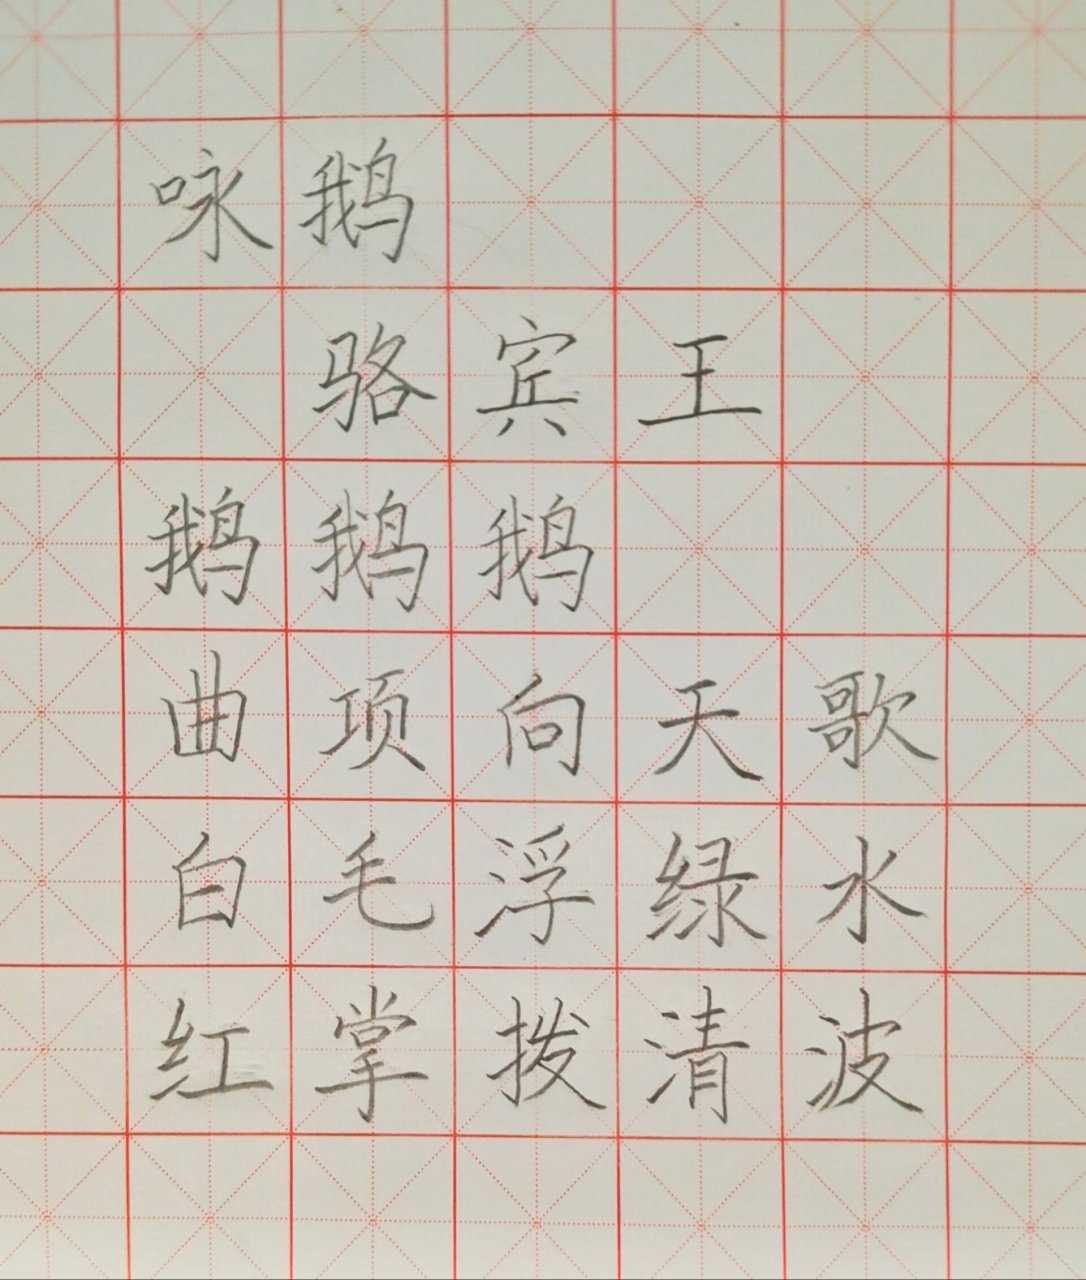 咏鹅
骆宾王
鹅鹅鹅
曲项向天歌
白毛浮绿水
红掌拨清波